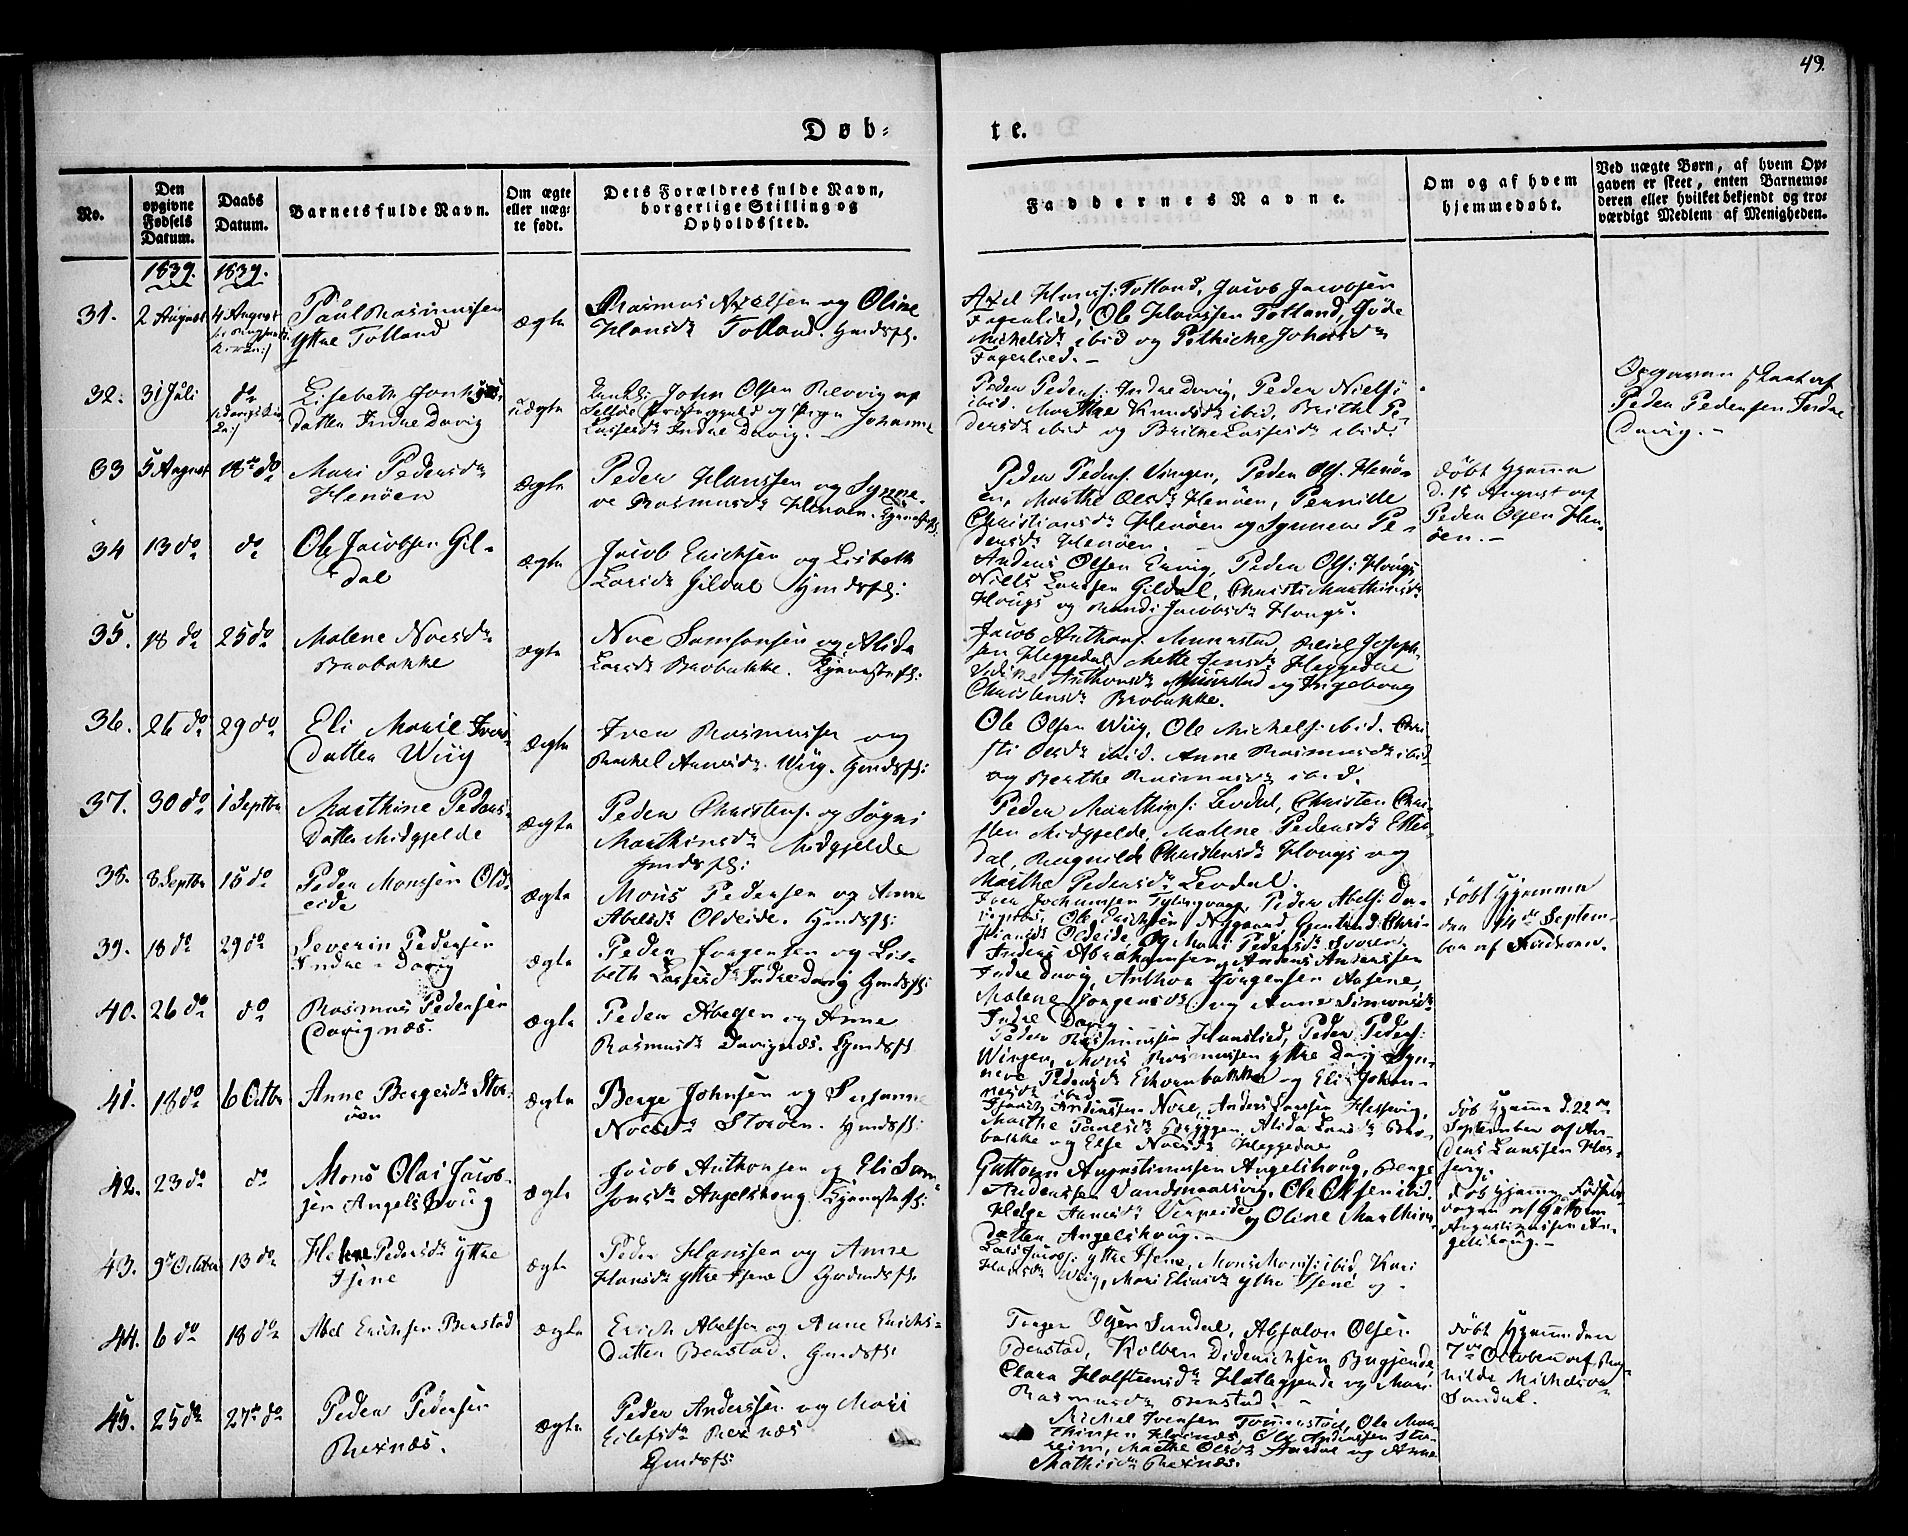 49.
Døb-
te.
No.
Den opgivne Fødsels Datum.
Daabs Datum.
Barnets fulde Navn.
Om ægte eller uægte født.
Dets Forældres fulde Navn, borgerlige Stilling og Opholdssted.
Faddernes Navne.
Om og af hvem hjemmedøbt.
Ved uægte Børn, af hvem Opgaven er skeet, enten Barnemoderen eller hvilket bekjendt og troværdigt Medlem af Menigheden.
1839. 1839.
31. 2 August 4 August
Paul Rasmussen
Yttre Totland
ægte
Rasmus Nielsen og Oline
Hansdr Totland. Gmdsfl.
Axel Hanss: Totland, Jacob Jacobsen
Fagerlied, Ole Hanssen Totland,
Michelsdr ibid og Johnsdr
Fagerlied. -
32. 31 Juli do
Lisbeth Johns
datter Indre Davig
uægte
John Olsen Revvig af
Selløe Præstegjeld og Pigen Johanne
Lassesdr Indre Davig. -
Peder Peders: Indre Davig, Peder Niels:
ibid. Marthe Knudsdr ibid, Brithe Pe-
dersdr ibid og Brithe Lassesdr ibid.
Opgaven skeet af
Peder Pedersen Indre
Davig. -
33 5 August 18de do
Mari Pedersdr
Henøen
ægte
Peder Hanssen og Synne-
ve Rasmusdr Henøen.
Peder Peders: Vingen, Peder Ols: Henø-
en, Marthe Olsdr Henøen, Pernille
Christiansdr Henøen og Synneve Pe-
dersdr Henøen.
Døbt hjemme
d. 15 August af
Peder Olsen Hen-
øen. -
34 13 do do
Ole Jacobsen Gil-
dal
ægte
Jacob Erichsen og Lisbeth
Larsdr Gildal Gmdsfl:
Anders Olsen Ervig, Peder Ols: Hougs
Nills Larssen Gildal, Christi Marthinsdr
Hougs og Randi Jacobsdr Hougs.
35. 18 do 25 do
Malene Noesdr
Brobakke
ægte
Noe Samsonsen og Alida
Larsdr Brobakke.
Jacob Anthons: Munestad, Joseph-
sen Heggedal, Mette Jensdr Heggedal
Anthonsdr Munestad og Ingeborg
Christensdr Brobakke.
36. 26 do 29 do
Eli Marie Ivers-
datter Wiig
ægte
Iver Rasmussen og
Rachel Arnesdr Wiig. Gmdsfl:
Ole Olsen Wiig, Ole Michels: ibid. Chri-
sti Olsdr ibid. Anne Rasmusdr ibid
og Berthe Rasmusdr ibid.
37. 30 do 1 Septbr
Marthine Peders-
datter Midgjelde
ægte
Peder Christens: og Søgni
Marthinsdr Midgjelde
Gmdsfl:
Peder Marthins: Levdal, Christen Chri-
sten Midgjelde, Malene Pedersdr Ette-
dal, Ragnilde Christensdr Hougs og
Marthe Pedersdr Levdal.
38. 8 Septbr 15 do
Peder Monsen Old-
eide
ægte
Mons Pedersen og Anne
Abelsdr Oldeide. Gmdsfl:
Iver Jochumsen, Peder Abels:
Ole Erichsen Nygaard, Gjertrud Chri-
stiansdr Oldeide, og Mari Pedersdr
Døbt hjemme
den 14de Septem-
ber af Faderen.
39. 18 do 29 do
Severin Pedersen
Indre-Davig
ægte
Peder Jørgensen og Lis-
beth Lassesdr Indre Davig Gmdsfl:
Anders Abrahamsen og Anders Anderssen
Indre Davig, Anthon Jørgensen Aasene,
Malene Jørgensdr og Anne Simonsdr
Indre Davig
40. 26 do do
Rasmus Pedersen
Davignæs.
ægte
Peder Abelsen og Anne
Rasmusdr Davignæs. Gmdsfl
Peder Rasmussen Haaslied, Peder Peders:
Wingen, Mons Rasmussen Yttre Davig Syn-
neve Pedersdr Echornbakken og Eli Johan-
nesdr ibid
41. 18 do 6 Octbr
Anne Bergesdr Stor-
øen
ægte
Berge Johnsen og Susanne
Noesdr Storøen. Gmdsfl:
Anderssen Nore, Anders Larssen
Marthe Paulsdr, Alida Larsdr Bro-
bakke og Else Noesdr Heggedal
Døb hjemme d. 22de
September af An-
ders Larssen
42. 23 do do
Mons Olai Jacob-
sen Angelshoug
ægte
Jacob Anthonsen og Eli Sam-
sonsdr Angelshoug.
Guttorm Augustinussen Angelshoug, Berge
Anderssen, Ole Olsen ibid.
Helge Arnesdr og Oline Marthins-
datter Angelshoug. -
Døb hjemme Fødsels-
dagen af Guttorm
Augustinussen An-
gelshoug. -
43. 9de October 13 do
Helene Pedersdr Yttre
Hjene
ægte
Peder Hanssen og Anne
Hansdr Yttre Hjene Gmdsfl.
Lars Jacobs: Yttre Hjene, Mons Mons: ibid Kari
Hansdr Wiig, Mari Eliasdr Yttre Hjene og -
44. 6 do 18 do
Abel Erichsen Berstad
ægte
Erich Abelsen og Anne Erichs-
datter Berstad. Gmdsfl:
Torger Olsen Sundal, Absalon Olsen
Berstad, Kolben Diderichsen Bugjerde,
Clara Holstensdr Hatlegjerde og Mari
Rasmusdr Berstad. -
Døbt hjemme den
7de October af Rag-
nilde Michelsdr
Sundal.
45. 25 do 27de do
Peder Pedersen
Rexnæs.
ægte
Peder Anderssen og Mari
Eilefsdr Rexnæs
Gmdsfl:
Michel Iversen, Ole Mar-
thinsen, Ole Anderssen Sto-
reim, Marthe Olsdr Aardal og Anne
Mathisdr Rexnæs.